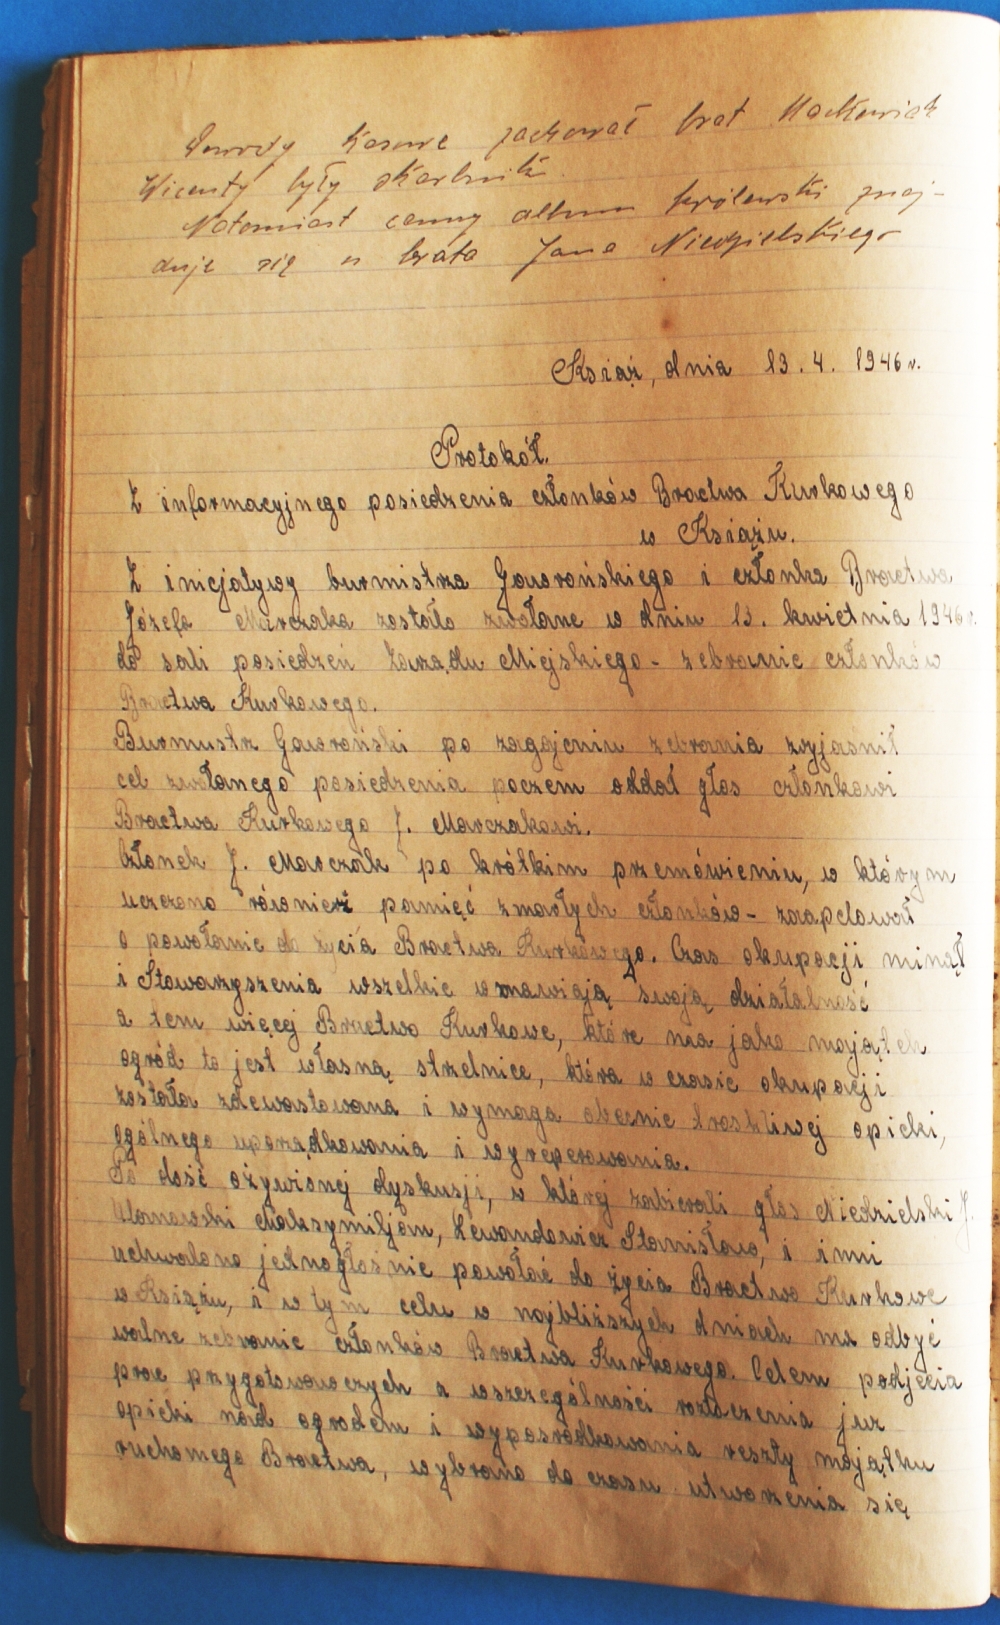 Dowody Kasowe zachował brat Maćkowiak
Wicenty były skarbnik.
Natomiast cenny album królewski znaj-
duje się u brata Jana Niedzielskiego
Książ, dnia 13. 4. 1946 r.
Protokół.
Z informacyjnego posiedzenia członków Bractwa Kurkowego
w Książu.
Z inicjatywy burmistrza Gaworońskiego i członka Bractwa
Józefa Marczaka zostało zwołane w dniu 13. kwietnia 1946 r.
do sali posiedzeń Zarządu Miejskiego - zebranie członków
Bractwa Kurkowego.
Burmustrz Gaworoński po zagajeniu zebrania wyjaśnił
cel zwołanego posiedzenia poczem oddał głos członkowi
Bractwa Kurkowego J. Marczakowi.
Członek J. Marczak po krótkim przemówieniu, w którym
uczczono również pamięć zmarłych członków - zaapelował
o powołanie do życia Bractwa Kurkowego. Czas okupacji minął
i Stowarzyszenia wszelkie wznawiają swoją działalność
a tem więcej Bractwo Kurkowe, które ma jako majątek
ogród to jest własną strzelnice, która w czasie okupacji
została zdewastowana i wymaga obecnie troskliwej opieki,
ogólnego uporządkowania i wyreperowania.
Po dość ożywionej dyskusji, w której zabierali głos Niedzielski J.
Maksymiljan, Lewandowicz Stanisław, i inni
uchwalono jednogłośnie powołać do życia Bractwo Kurkowe
w Książu, i w tym celu w najbliższych dniach ma odbyć
walne zebranie członków Bractwa Kurkowego. Celem podjęcia
prac przygotowawczych a wszczególności roztoczenia już
opieki nad ogrodem i wypośrodkowania reszty majątku
ruchomego Bractwa, wybrano do czasu utworzenia się